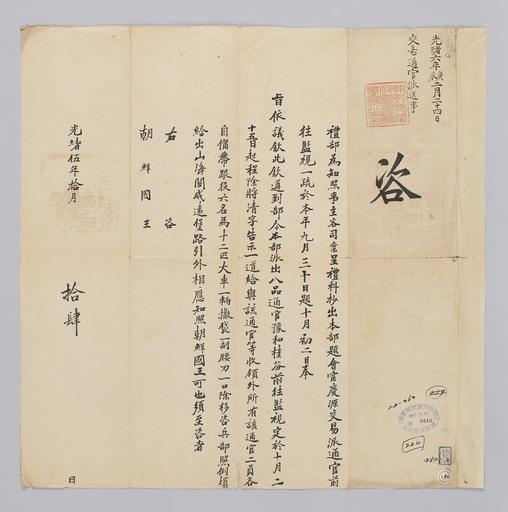 光緒六年庚辰二月二十四日
交易通官派送事
咨
禮部為知照事主客司案呈禮科抄出本部題會寧慶源交易派通官前
往監視一疏於本年九月三十日題十月初二日奉
旨依議欽此欽遵到部今本部派出八品通官豫和桂芬前往監視定於十月二
十五日起程除將清字告示一道給與該通官等收領外所有該通官二員各
自備帶跟役六名馬十二匹大車一輛撒袋一副腰刀一口除移咨兵部照例填
給出山海關威遠堡路引外相應知照朝鮮國王可也須至咨者
右咨
朝鮮國王
光緒伍年拾月
拾肆
日
222
220